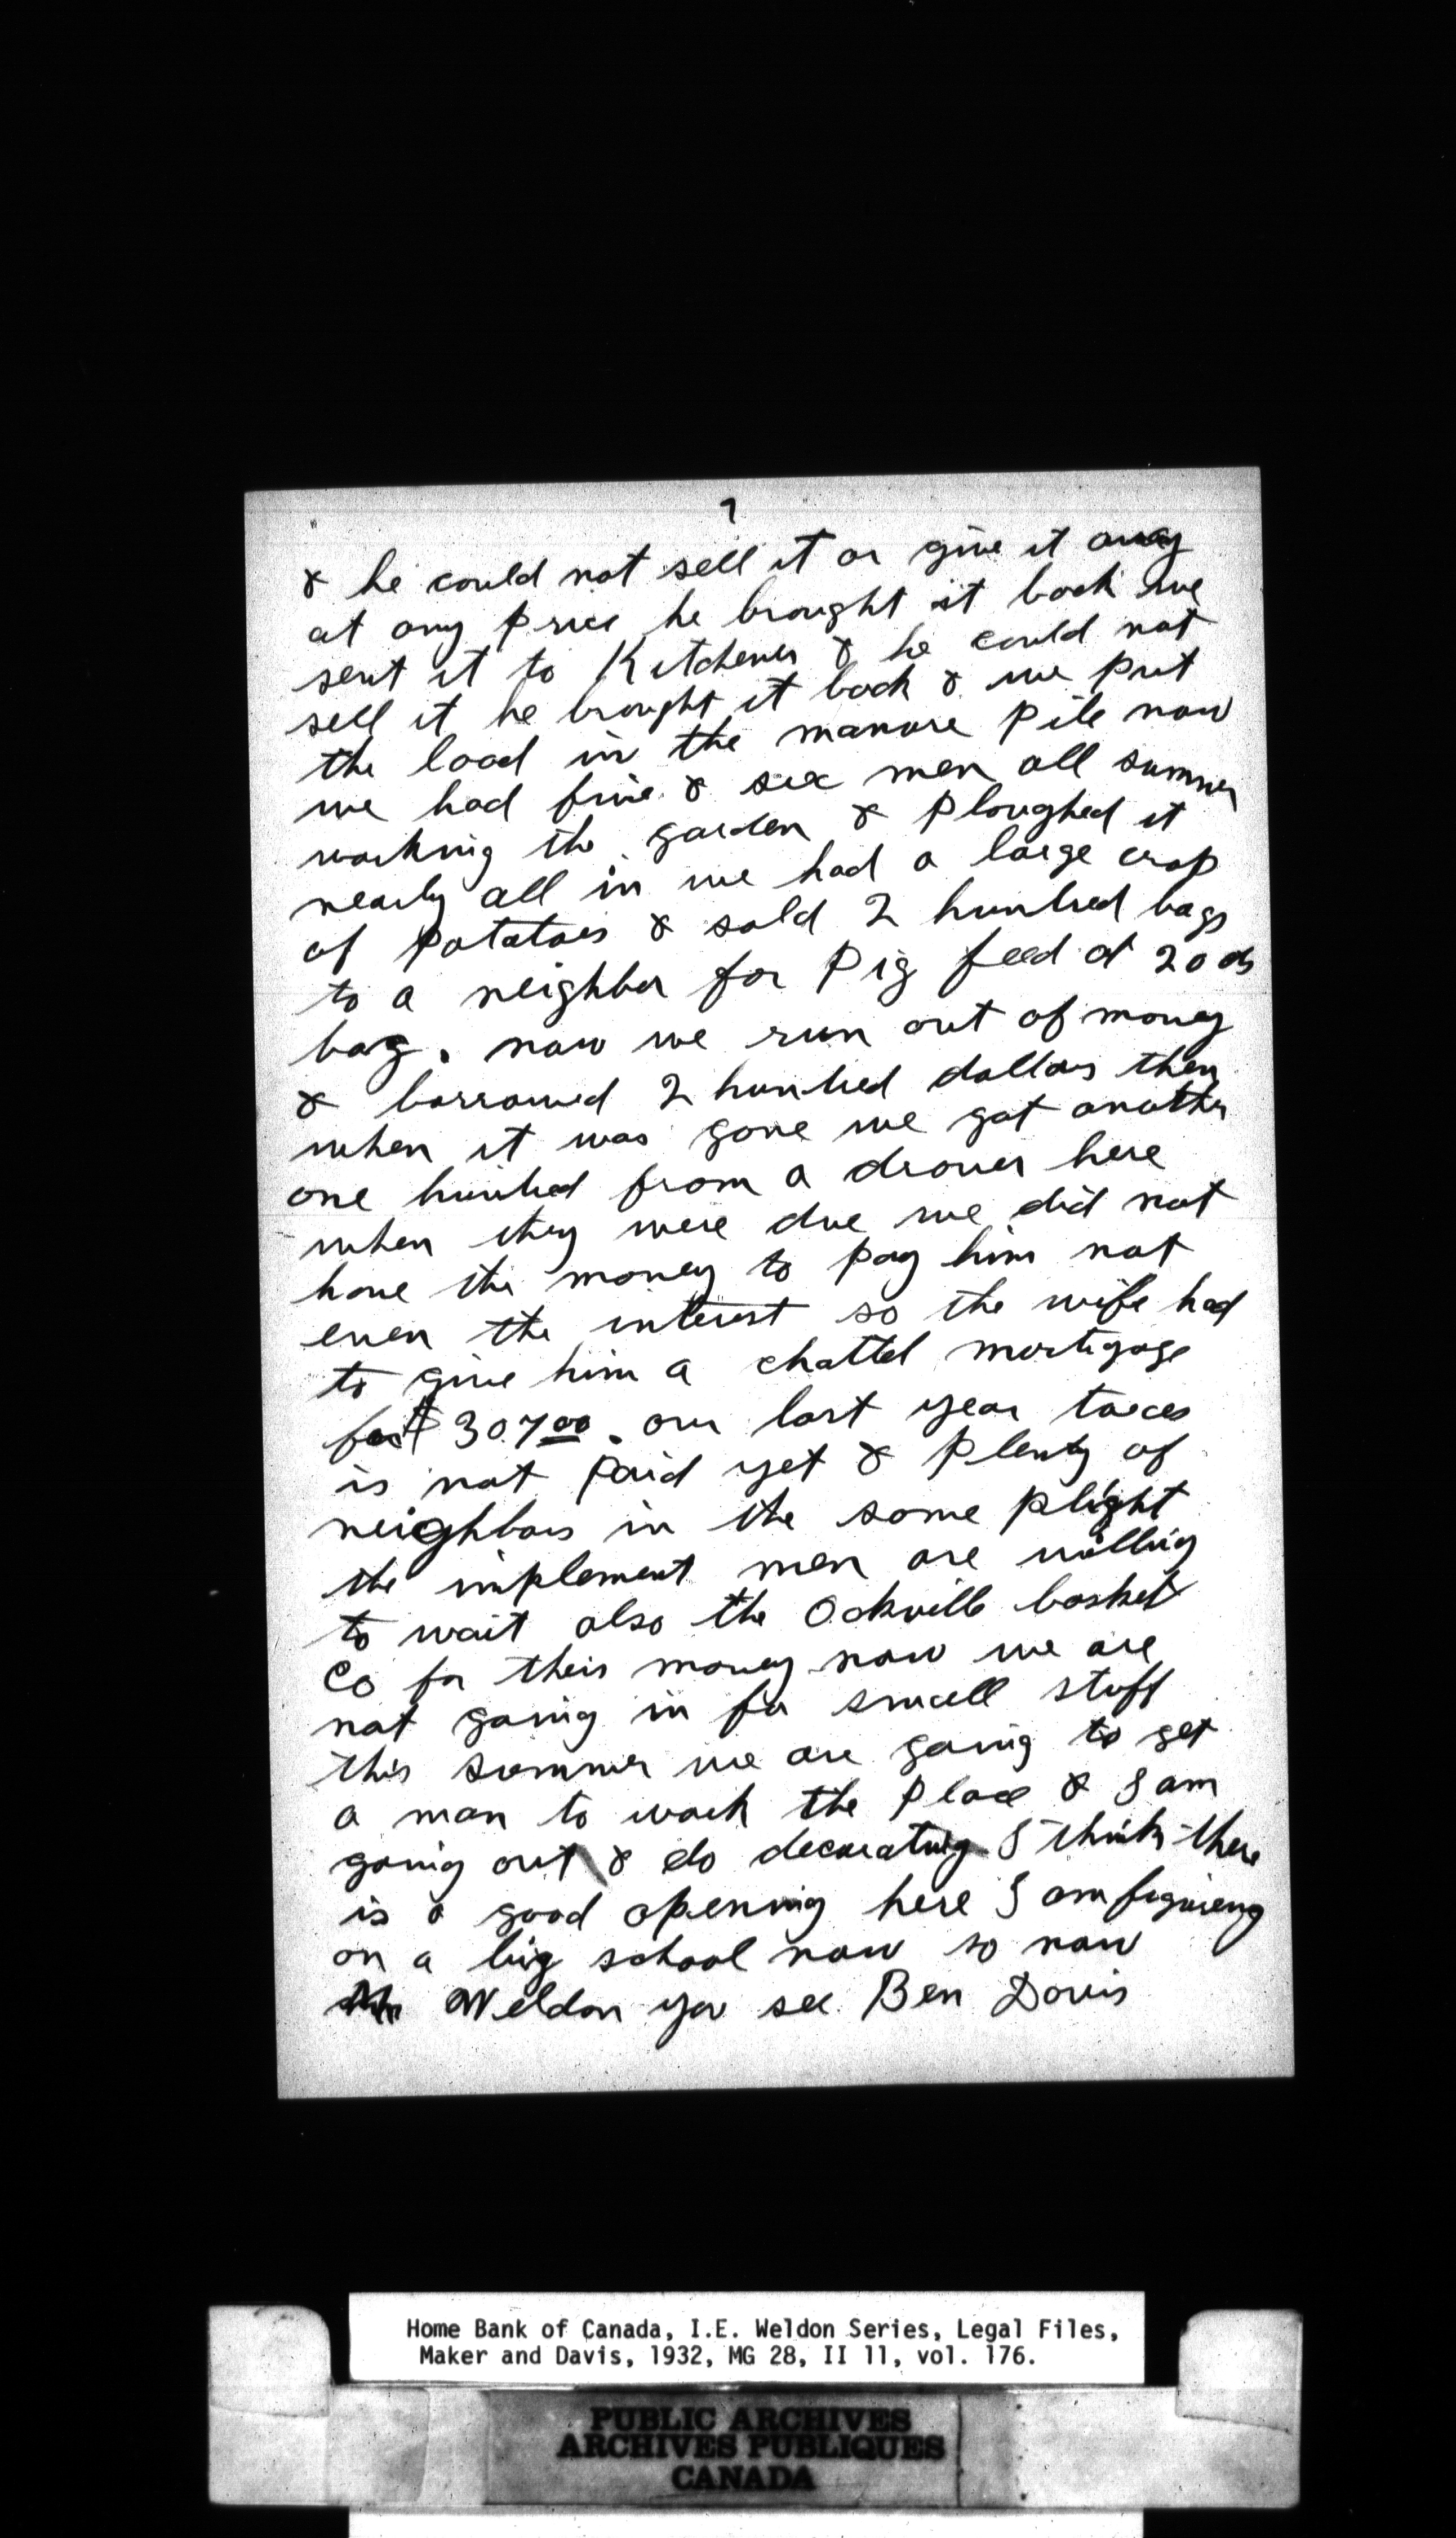 7
& he could not sell it or give it away
at any price he brought it back we
sent it to Kitchener & he could not
sell it he brought it back & we put
the load in the manure pile now
we had five & six men all summer
working the garden & ploughed it
nearly all in we had a large crop
of Potatoes & sold 2 hundred bags
to a neighbor for Pig feed at 20 cts
bag. now we run out of money
& borrowed 2 hundred dollars then
when it was gone we got another
one hundred from a drover here
when they were due we did not
have the money to pay him not
even the interest so the wife had
to give him a chattel mortigage
for $307.00. our last year taxes
is not paid yet & plenty of
neighbors in the same plight
the implement men are willing
to wait also the Oakville basket
Co for their money now we are
not going in for small stuff
this summer we are going to get
a man to work the place & I am
going out & do decorating I think there
is a good opening here I am figureing
on a big school now so now
Mr Weldon you see Ben Davis
Home Bank of Canada, I.E. Weldon Series, Legal Files,
Maker and Davis, 1932, MG 28, II 11, vol. 176.
PUBLIC ARCHIVES
ARCHIVES PUBLIQUES
CANADA